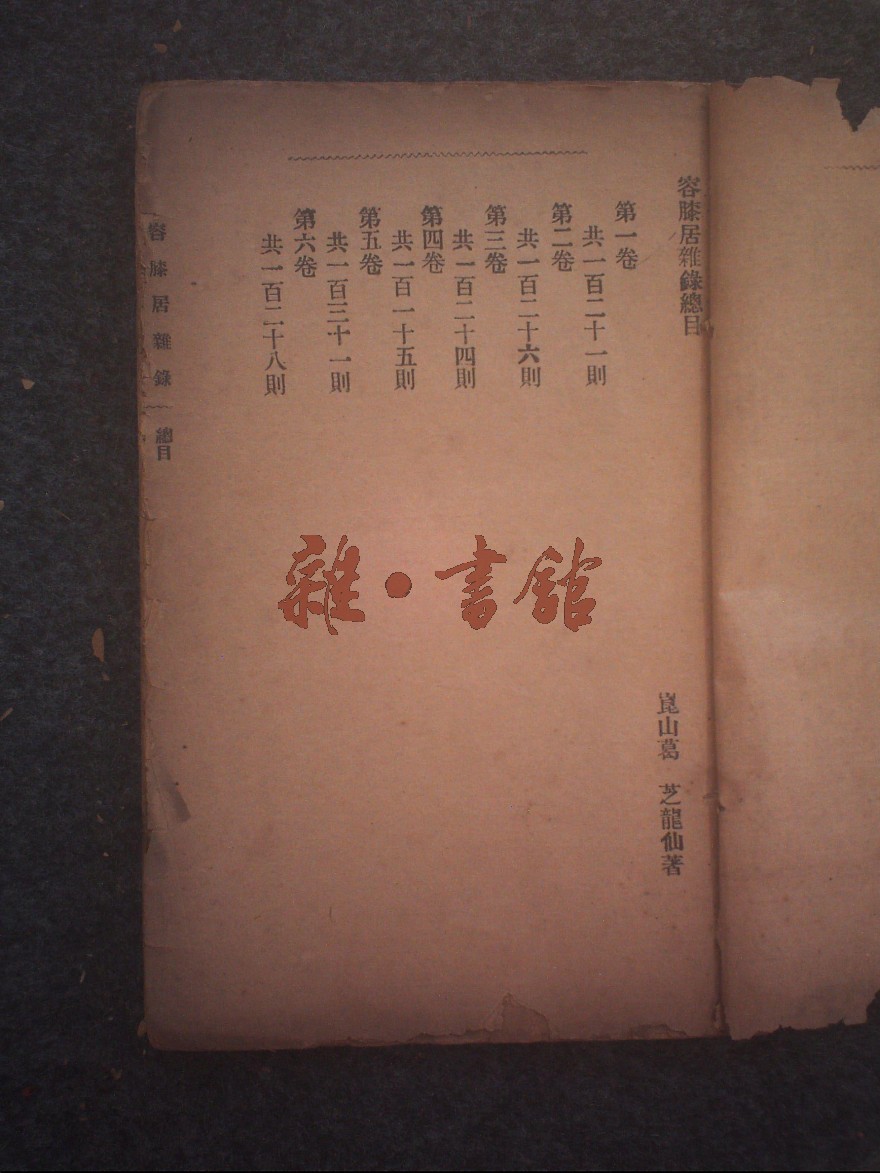 容膝居雜錄總目
崑山葛　芝龍仙著
第一卷
共一百二十一則
第二卷
共一百二十六則
第三卷
共一百二十四則
第四卷
共一百一十五則
第五卷
共一百三十一則
第六卷
共一百二十八則
容膝居雜錄
總目
雜・書館